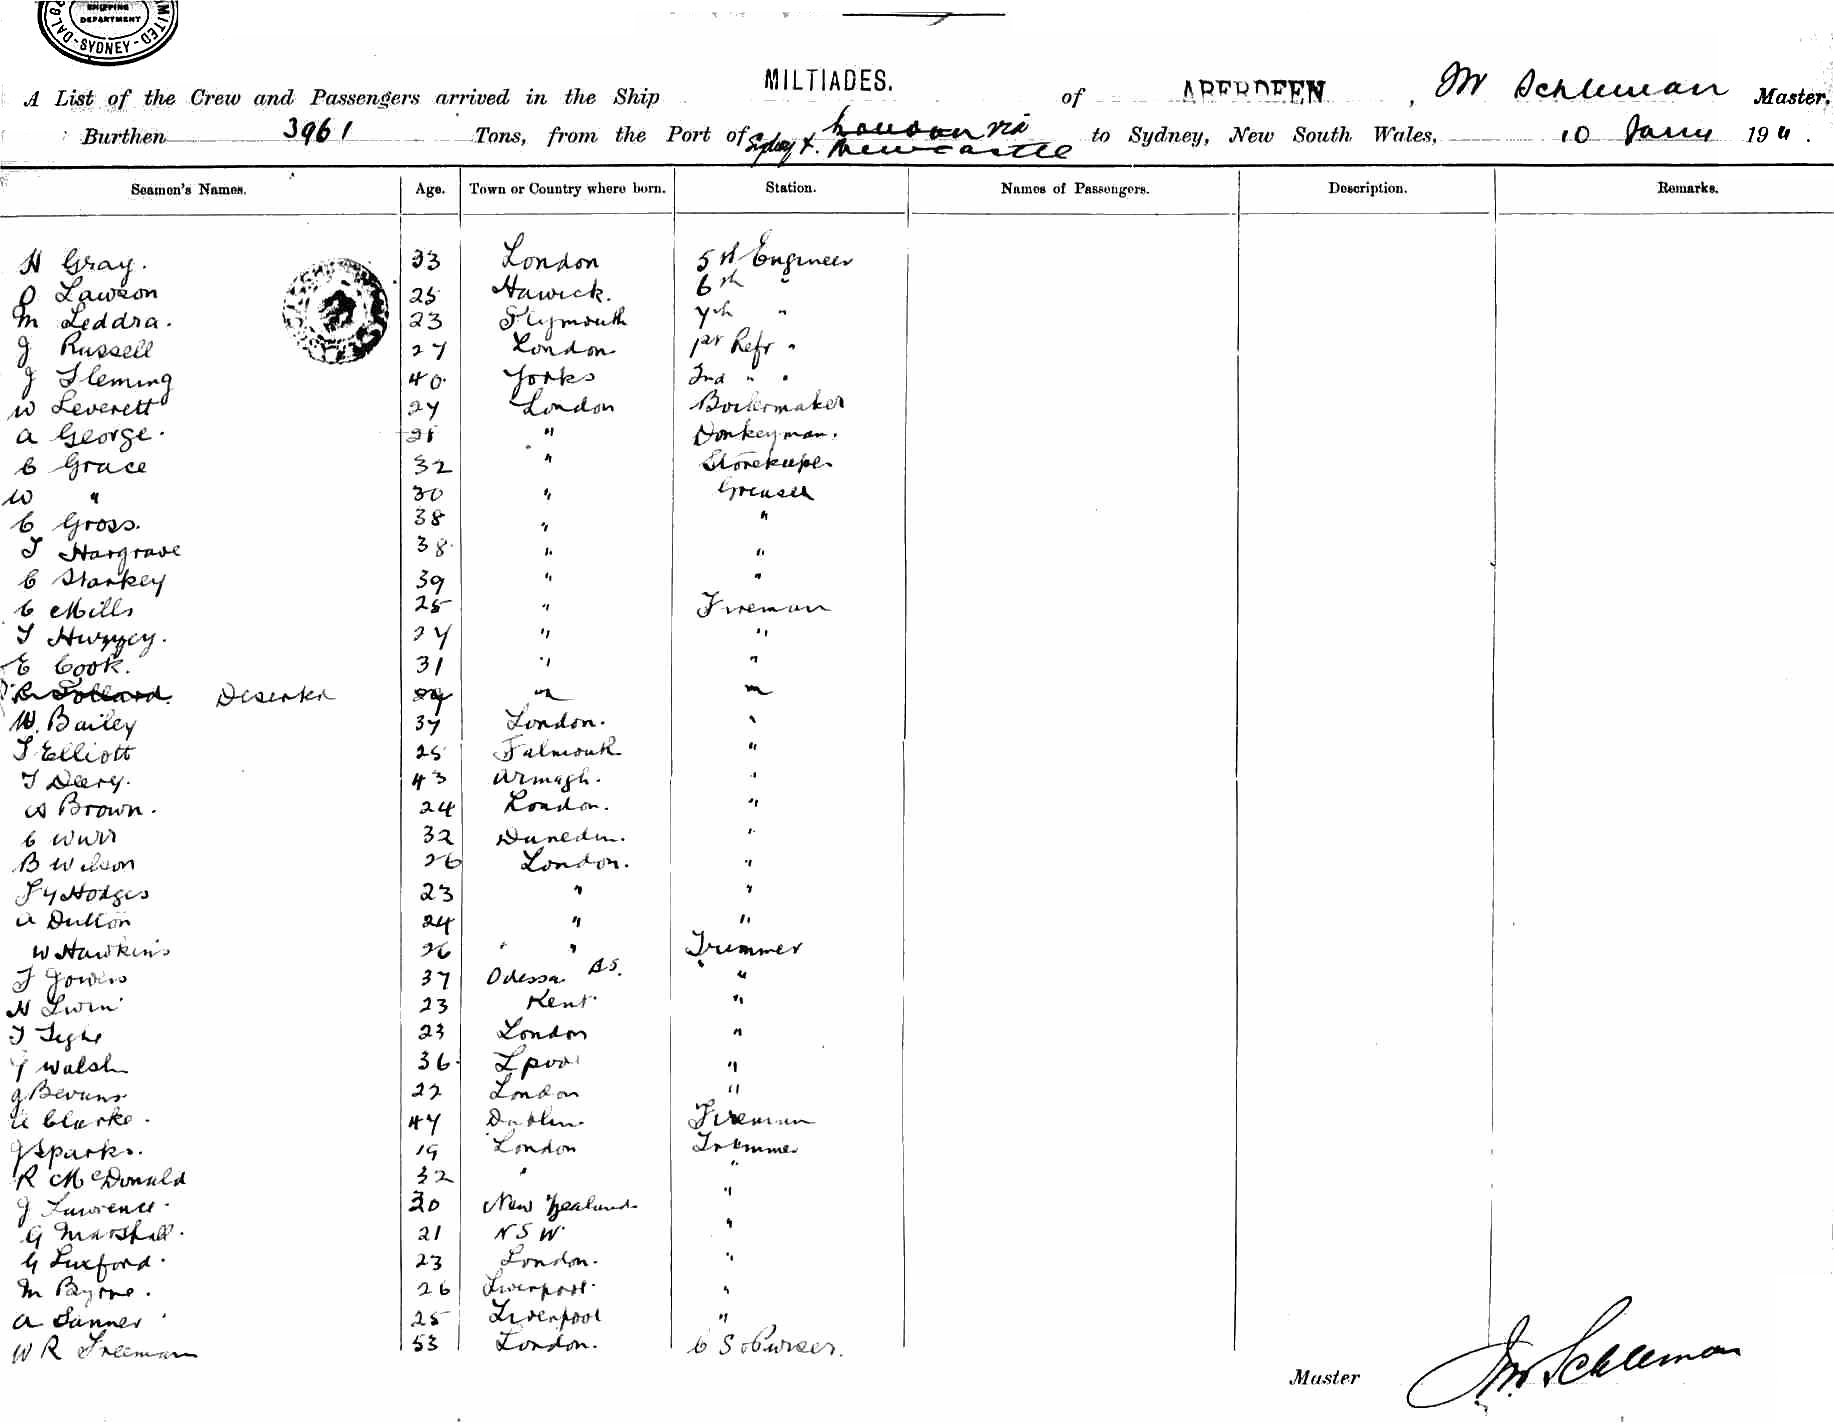 SHIPPING
DEPARTMENT
SYDNEY
A List of the Crew and Passengers arrived in the Ship MILTIADES. of ABERDEEN, M Schleman Master,
Burthen 3961 Tons, from the Port of London via Sydney & Newcastle to Sydney, New South Wales, 10 Jany 1911.
Seamen's Names. Age. Town or Country where born. Station. Names of Passengers. Description. Remarks.
H Gray. 33 London 5th Engineer
O Lawson 25 Hawick. 6th "
M Leddra. 23 Plymouth 7th "
J Russell 27 London 1st Refr "
J Fleming 40. Yorks 2nd " "
W Leverett 27 London Boilermaker
A George. " Donkeyman.
C Grace 32 " Storekeeper
W " 30 " Greaser
C Gross. 38 " "
T Hargrave 38 " "
C Starkey 39 " "
C Mills 25 " Fireman
T 27 " "
E Cook. 31 " "
Deserted " "
W. Bailey 37 London. "
T Elliott 25 Falmouth "
T Deery. 43 Armagh. "
A Brown. 24 London. "
C Wurr 32 Dunedin. "
B Wilson 26 London. "
Hodges 23 " "
A Dutton 24 " "
W Hawkins 26 " " Trimmer
T Gowers 37 Odessa BS. "
H 23 Kent "
T Tighe 23 London "
Walsh 36 Lpool "
J Bevans 22 London "
Clarke. 47 Dublin. Fireman
J Sparks. 19 London Trimmer
R McDonald 32 " "
J Lawrence. 30 New Zealand. "
G Marshall. 21 NSW "
G Luxford. 23 London. "
M Byrne. 26 Liverpool. "
A Tanner 25 Liverpool "
W R Freeman 53 London. Purser.
Master Schleman